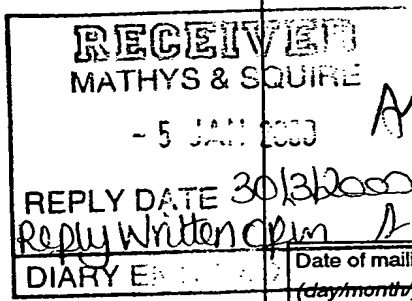 RECEIVED
MATHYS & SQUIRE
- 5 JAN 2000
REPLY DATE 30/3/2000
Reply Written Opin
DIARY E
Date of maili
(day/month/